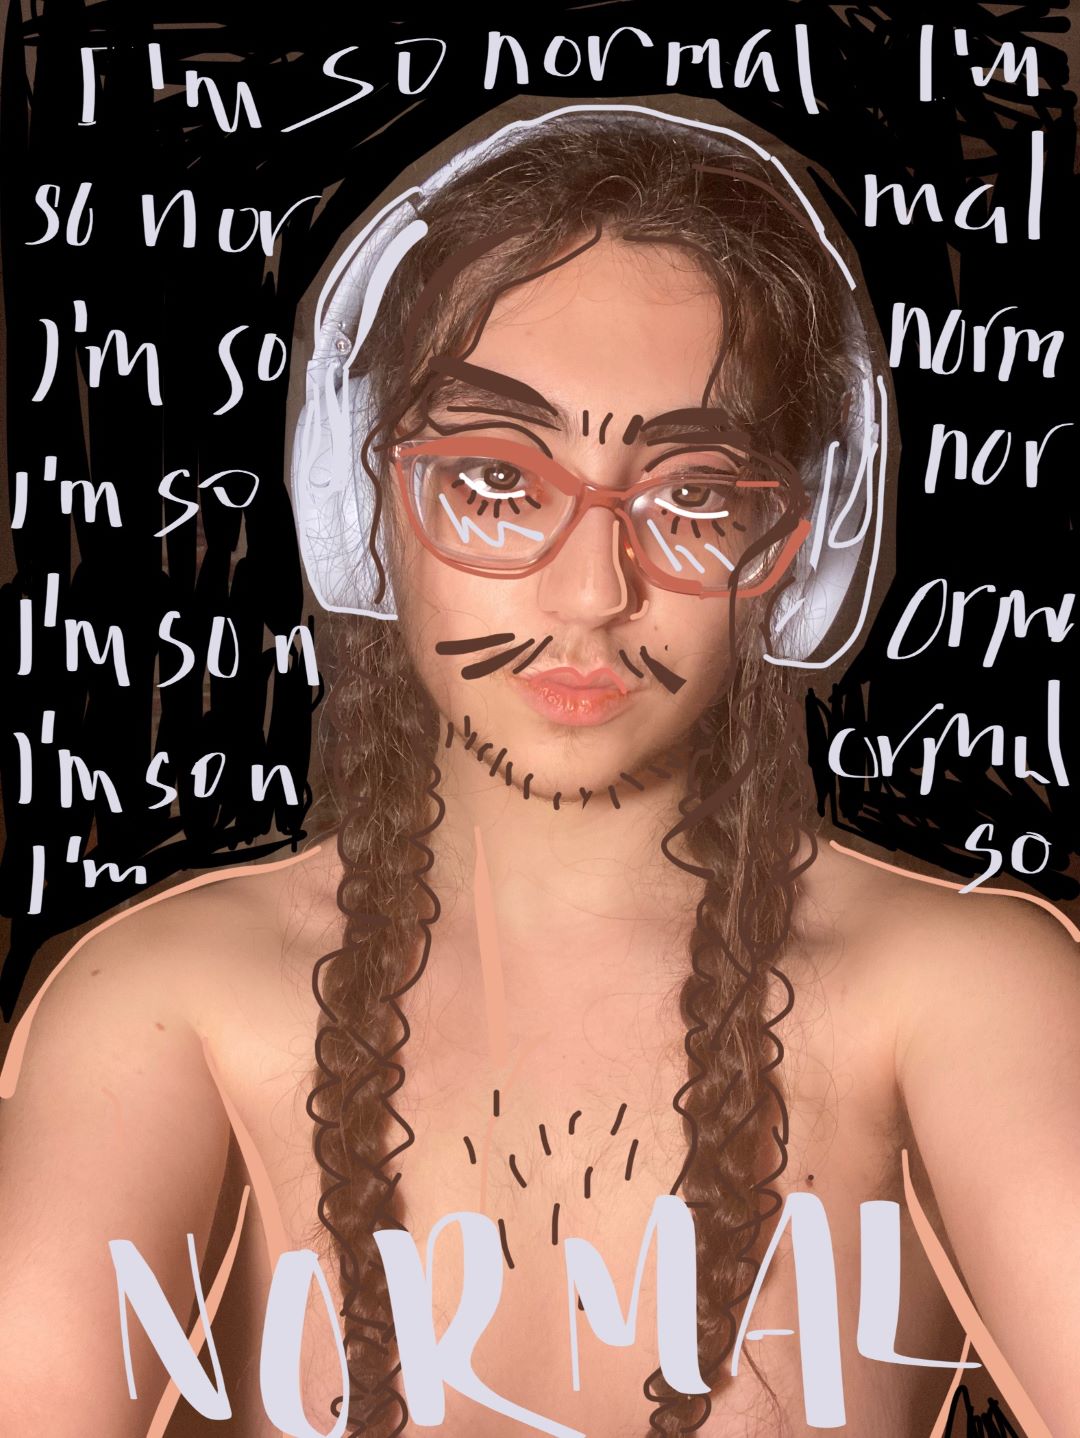 I'm so normal I'm
so nor mal
I'm so norm
I'm so nor
I'm so n ormal
I'm so n ormal
I'm so
NORMAL